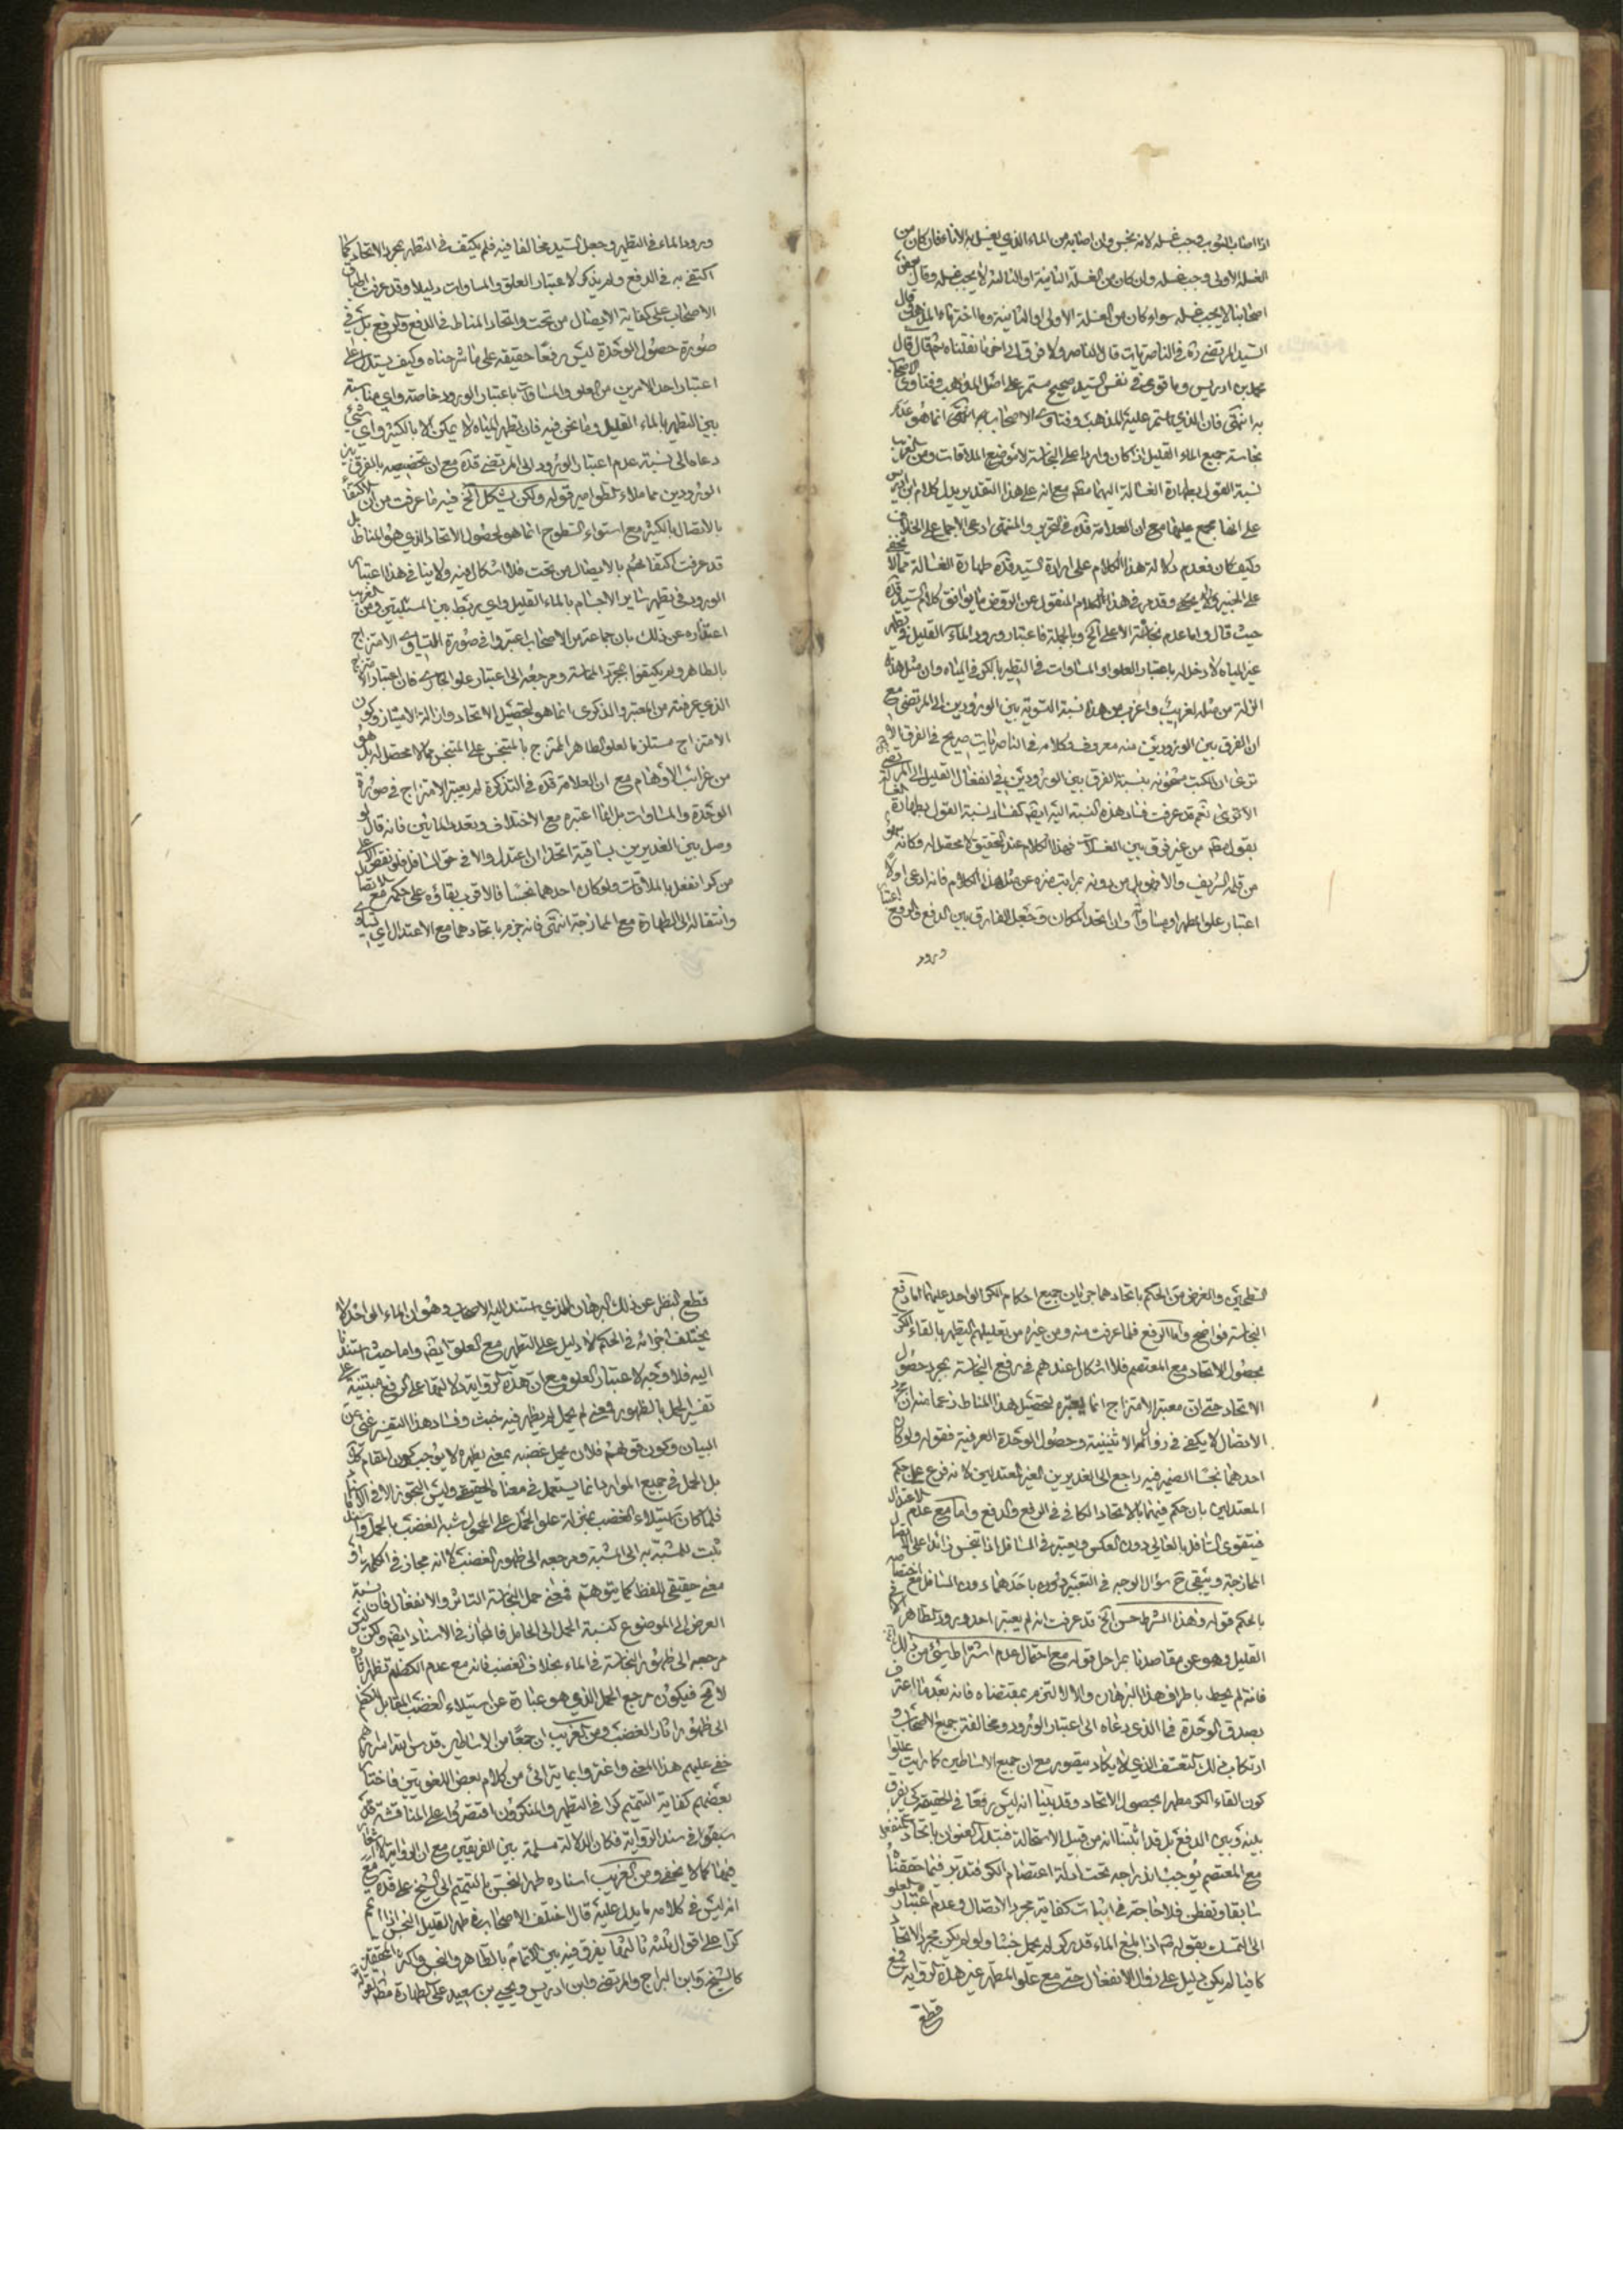 اذا اصاب الثوب وجب غسله لانه نجس وان اصابه من الماء الذي يغسل به الاناء فان كان من
الغسلة الاولى وجب غسله وان كان من الغسلة الثانية او الثالثة لا يجب غسله وقال بعض
اصحابنا لا يجب غسله سواء كان من الغسلة الاولى او الثانية وما اختاره المذهب قال
السيد المرتضى ره في الناصريات قال الناصر ولا فرق الى اخر ما نقلناه ثم قال قال
محمد بن ادريس وما قوى في نفس السيد صحيح مستمر على اصل المذهب وفتاوى الاصحاب
به انتهى فان الذي استمر عليه المذهب وفتاوى الاصحاب به انتهى انما هو عدم
نجاسة جميع الماء القليل اذا كان واردا على النجاسة لا موضع الملاقات ومن الغريب
نسبة القول بطهارة الغسالة اليهما مع انه على هذا التقدير يدل كلام ابن ادريس
على انها مجمع عليها مع ان العلامة قده في التحرير والمنتهى ادعى الاجماع على الخلاف
وكيف كان فعدم دلالة هذا الكلام على ارادة السيد قده طهارة الغسالة مما لا يخفى
على الخبير وقد مر في هذا الكلام المنقول عن الروض ما يوافق كلام السيد قده
حيث قال واما عدم نجاسة الاعلى الخ وبالجملة فاعتبار ورود الماء القليل في تطهير
غير المياه لا دخل له باعتبار العلو او المساوات في التطهير بالكر في المياه وان مثل هذه
الزلة من مثله لغريب واغرب من هذه نسبة التسوية بين الورودين الى المرتضى مع
ان الفرق بين الورودين منه معروف وكلامه في الناصريات صريح في الفرق الا
ترى ان الكتب مشحونة بنسبة الفرق بين الورودين في انفعال القليل الى المرتضى
الا ترى ثم قد عرفت فساد هذه النسبة اليه ايضا كفساد نسبة القول بطهارة الغسالة
بقول مطلق من غير فرق بين الغسلات فهذا الكلام عند التحقيق لا محصل له وكانه سهو
من قلمه الشريف والا فهو بل من دونه بمراتب منزه عن مثل هذا الكلام فانه ادعى اولا
اعتبار علو المطهر او مساواته وان اتحد المكان وجعل الفارق بين الدفع والرفع اعتبار
ورود
ورود الماء في التطهير وجعل السيد مخالفا فيه فلم يكتف في التطهير بمجرد الاتحاد كما
اكتفى به في الدفع ولم يذكر لاعتبار العلو والمساوات دليلا وقد عرفت اطباق
الاصحاب على كفاية الايصال من تحت واتحاد المناط في الدفع والرفع بل في
صورة حصول الوحدة ليس رفعا حقيقة على ما شرحناه وكيف يستدل على
اعتبار احد الامرين من العلو والمساوات باعتبار الورود خاصة واي مناسبة
بين التطهير بالماء القليل وما نحن فيه فان تطهير المياه لا يمكن الا بالكثير واي شيء
دعاه الى نسبة عدم اعتبار الورود الى المرتضى قده مع ان تخصيصه بالفرق بين
الورودين مما ملاء الطوامير قوله ولكن يشكل الخ فيه ما عرفت من ان الاكتفاء
بالاتصال بالكثير مع استواء السطوح انما هو لحصول الاتحاد الذي هو المناط بل
قد عرفت اكتفائهم بالايصال من تحت فلا اشكال فيه ولا ينافي هذا اعتبار
الورود في تطهير ساير الاجسام بالماء القليل واي ربط بين المسئلتين ومن الغريب
اعتذاره عن ذلك بان جماعة من الاصحاب اعتبروا في صورة التساوى الامتزاج
بالطاهر ولم يكتفوا بمجرد المماسة ومرجعه الى اعتبار علو الجاري فان اعتبار الامتزاج
الذي عرفته من المعتبر والذكرى انما هو لتحصيل الاتحاد وازالة الامتياز وكون
الامتزاج مستلزما لعلو الطاهر الممتزج بالمتنجس على المتنجس مما لا محصل له بل هو
من غرائب الاوهام مع ان العلامة قده في التذكرة لم يعتبر الامتزاج في صورة
الوحدة والمساوات بل انما اعتبره مع الاختلاف وتعدد المائين فانه قال لو
وصل بين الغديرين بساقية اتحدا ان اعتدل والا في حق السافل فلو نقص الاعلى
من كر انفعل بالملاقات ولو كان احدهما نجسا فالاقرب بقاؤه على حكمه مع الاتصال
وانتقاله الى الطهارة مع الممازجة انتهى فانه جزم باتحادهما مع الاعتدال اي تساوى
السطحين والغرض من الحكم باتحادهما جريان جميع احكام الكر الواحد عليهما اما دفع
النجاسة فواضح واما الرفع فلما عرفت منه ومن غيره من تعليلهم التطهير بالقاء الكر
بحصول الاتحاد مع المعتصم فلا اشكال عندهم في رفع النجاسة بمجرد حصول
الاتحاد حتى ان معتبر الامتزاج انما يعتبره لتحصيل هذا المناط زعما منه ان مجرد
الاتصال لا يكفى في زوال الاثنينية وحصول الوحدة العرفية فقوله ولو كان
احدهما نجسا الضمير فيه راجع الى الغديرين الغير المعتدلين لانه فرع على حكم
المعتدلين بان حكم فيهما بالاتحاد الكافي في الرفع والدفع واما مع عدم الاعتدال
فيتقوى السافل بالعالي دون العكس ويعتبر في السافل اذا تنجس زائدا على الاتصال
الممازجة ويبقى ح سؤال الوجه في التعبير دونه باحدهما دون السافل مع اختصاصه
بالحكم قوله وهذا الشرط حسن الخ قد عرفت انه لم يعتبر احد ورود الطاهر الا في
القليل وهو عن مقاصدنا بمراحل قوله مع احتمال عدم اشتراط شيء من ذلك الخ
فانه لم يحط باطراف هذا البرهان والا لالتزم بمقتضاه فانه بعد ما اعترف
بصدق الوحدة فما الذي دعاه الى اعتبار الورود ومخالفة جميع الاصحاب و
ارتكاب ذلك التعسف الذي لا يكاد يتصور مع ان جميع الاساطين كما رايت عللوا
كون القاء الكر مطهرا بحصول الاتحاد وقد بينا انه ليس رفعا في الحقيقة كي يفرق
بينه وبين الدفع بل قد اثبتنا انه من قبيل الاستحالة فتبدل العنوان باتحاد المنفعل
مع المعتصم يوجب اندراجه تحت ادلة اعتصام الكر فتدبر فيما حققناه
سابقا وتفطن فلا حاجة في اثبات كفاية مجرد الاتصال وعدم اعتبار العلو
الى التمسك بقوله ع اذا بلغ الماء قدر كر لم يحمل خبثا ولو لم يكن مجرد الاتحاد
كافيا لم يكن دليل على زوال الانفعال حتى مع علو المطهر غير هذه الرواية فمع
قطع
قطع النظر عن ذلك البرهان الذي استند اليه الاصحاب وهو ان الماء الواحد لا
يختلف اجزائه في الحكم لا دليل على التطهير مع العلو ايضا واما حيث استندنا
اليه فلا وجه لاعتبار العلو مع ان هذه الرواية دلالتها على الرفع مبتنية على
تفسير الحمل بالظهور فمعنى لم يحمل لم يظهر فيه خبث وفساد هذا التفسير غنى عن
البيان وكون قولهم فلان يحمل غضبه بمعنى يظهره لا يوجب كون المقام كك
بل الحمل في جميع الموارد انما يستعمل في معناه الحقيقي وليس التجوز الا في الاسناد
فلما كان استيلاء الغضب بمنزلة علو الحمل على المحمول شبه الغضب بالحمل
ثبت للمشبه به الى المشبه ومرجعه الى ظهور الغضب لا انه مجاز في الكلمة او
معنى حقيقي للفظ كما يتوهم فمعنى حمل النجاسة التاثر والانفعال فان نسبة
العرض الى الموضوع كنسبة الحمل الى الحامل فالمجاز في الاسناد ايضا ولكن ليس
مرجعه الى ظهور النجاسة في الماء بخلاف الغضب فانه مع عدم الكظم تظهر اثاره
لا مح فيكون مرجع الحمل الذي هو عبارة عن استيلاء الغضب المقابل للكظم
الى ظهور اثار الغضب ومن الغريب ان جمعا من الاساطين قدس الله اسرارهم
خفى عليهم هذا المعنى واغتروا بما يترائى من كلام بعض اللغويين فاختار
بعضهم كفاية التتميم كرا في التطهير والمنكرون اقتصروا على المناقشة
في سند الرواية فكان الدلالة مسلمة بين الفريقين مع ان الرواية لا اشعار
فيها كما لا يخفى ومن الغريب اسناده طهر النجس بالتتميم الى الشيخ على قده مع
انه ليس في كلامه ما يدل عليه قال اختلف الاصحاب في طهر القليل النجس اذا تمم
كرا على اقوال ثلثة ثالثها يفرق فيه بين اتمامه بالطاهر والنجس واكثر المحققين
كالشيخ وابن البراج والمرتضى وابن ادريس ويحيى بن سعيد على الطهارة مط لقوله